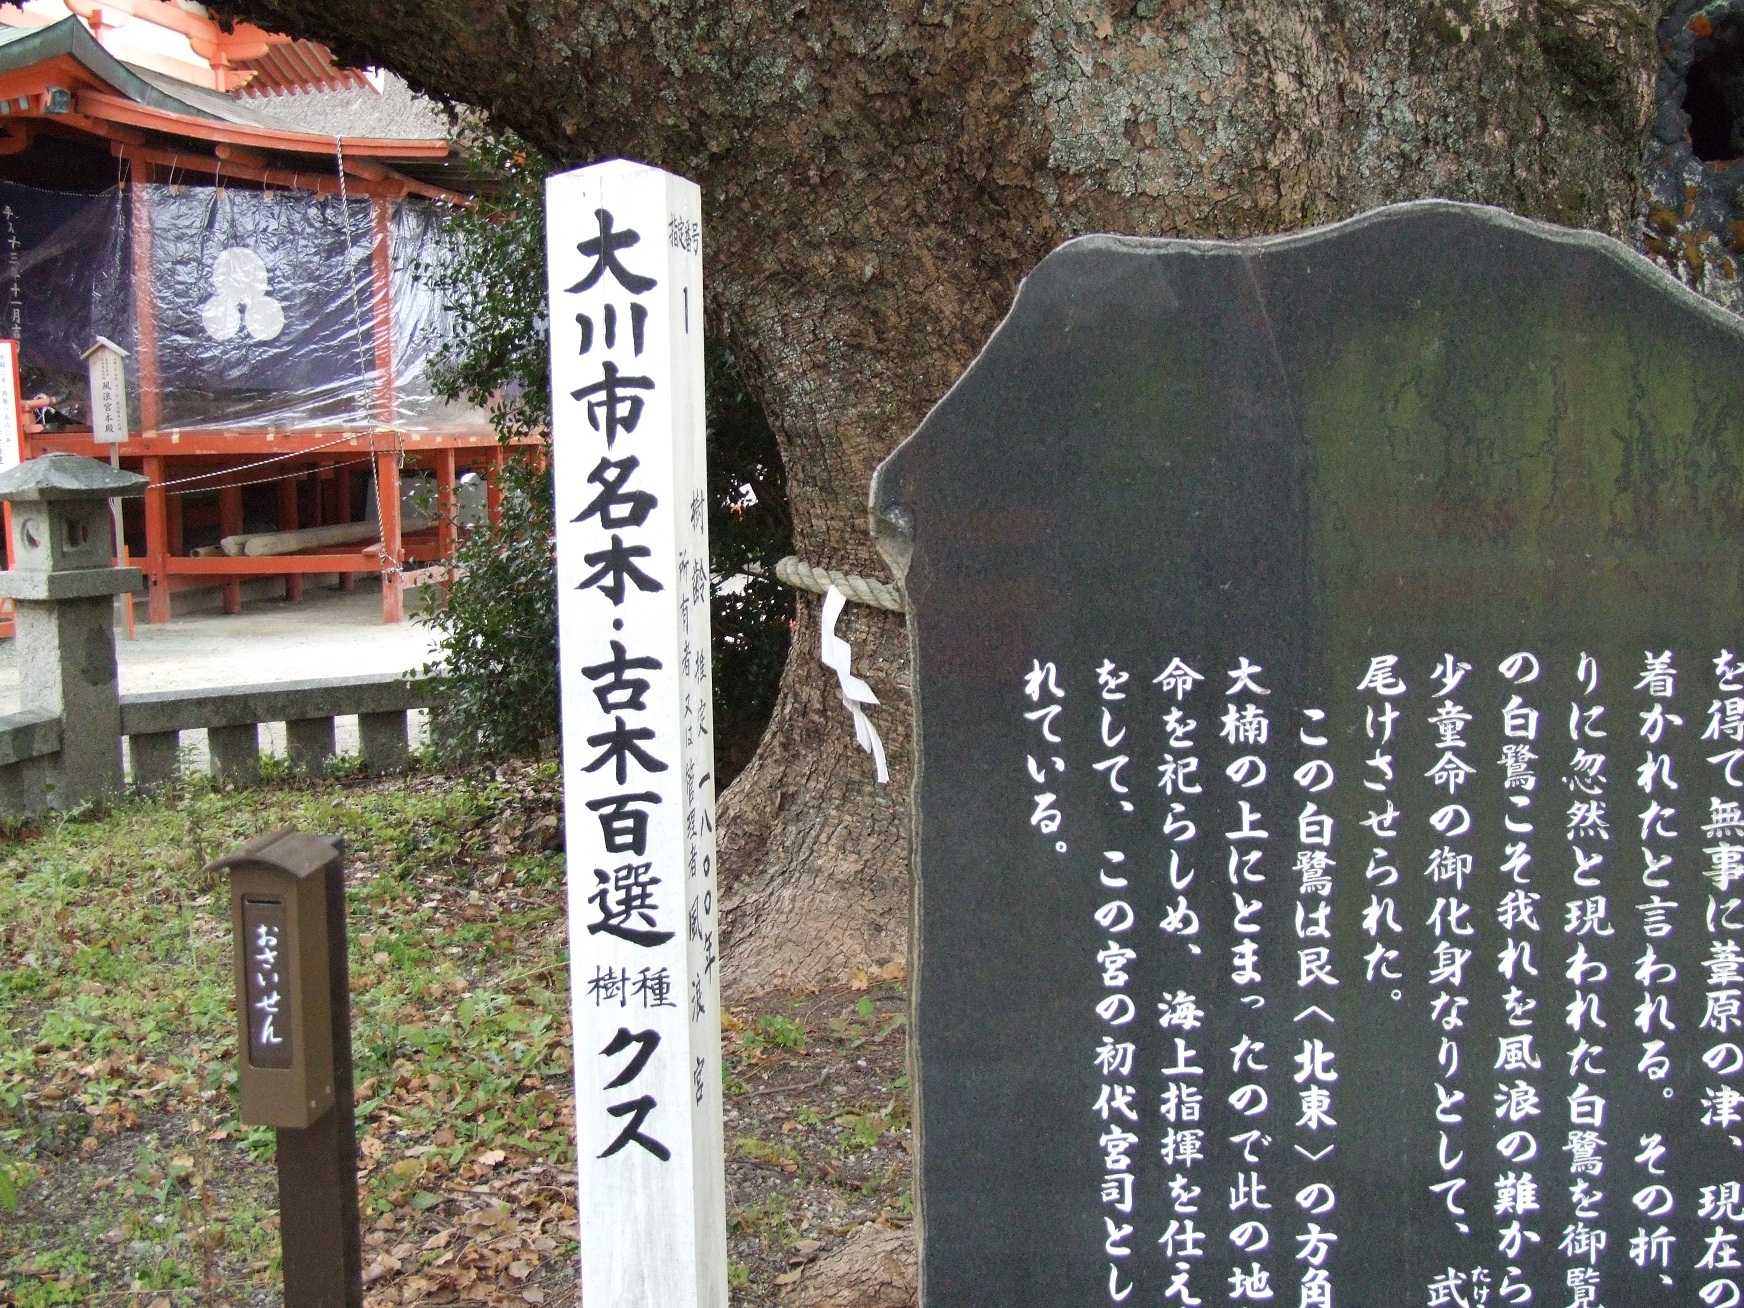 大川市名木・古木百選
樹種
クス
指定番号
1
樹齢推定一八〇〇年
所有者又は管理者風浪宮
おさいせん
風浪宮本殿
を得て無事に葦原の津、現在の
着かれたと言われる。その折、
りに忽然と現われた白鷺を御覧
の白鷺こそ我れを風浪の難から
少童命の御化身なりとして、武
たけ
尾けさせられた。
この白鷺は艮〈北東〉の方角
大楠の上にとまったので此の地
命を祀らしめ、海上指揮を仕え
をして、この宮の初代宮司とし
れている。